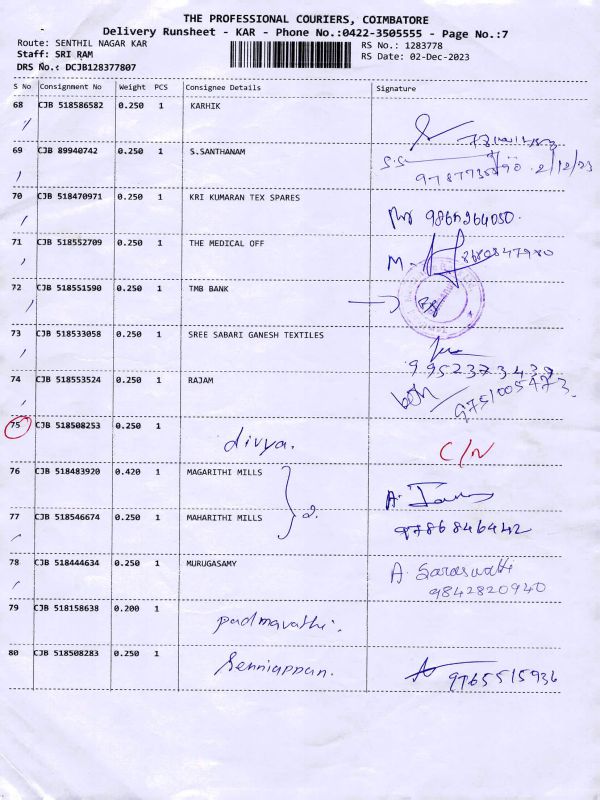 THE PROFESSIONAL COURIERS, COIMBATORE
Delivery Runsheet - KAR - Phone No.:0422-3505555 - Page No.:7
Route: SENTHIL NAGAR KAR
RS No.: 1283778
Staff: SRI RAM
RS Date: 02-Dec-2023
DRS No.: DCJB128377807
S No Consignment No Weight PCS Consignee Details Signature
68 CJB 518586582 0.250 1 KARHIK
69 CJB 89940742 0.250 1 S.SANTHANAM S.S 2/12/23
70 CJB 518470971 0.250 1 KRI KUMARAN TEX SPARES
71 CJB 518552709 0.250 1 THE MEDICAL OFF M. 8680847980
72 CJB 518551590 0.250 1 TMB BANK
73 CJB 518533058 0.250 1 SREE SABARI GANESH TEXTILES
9952373439
74 CJB 518553524 0.250 1 RAJAM 9751005473.
75 CJB 518508253 0.250 1 divya. C/N
76 CJB 518483920 0.420 1 MAGARITHI MILLS 2. A.
77 CJB 518546674 0.250 1 MAHARITHI MILLS 9786846442
78 CJB 518444634 0.250 1 MURUGASAMY A. Saraswathi
9842820940
79 CJB 518158638 0.200 1 padmavathi.
80 CJB 518508283 0.250 1 Senniappan. 9765515936